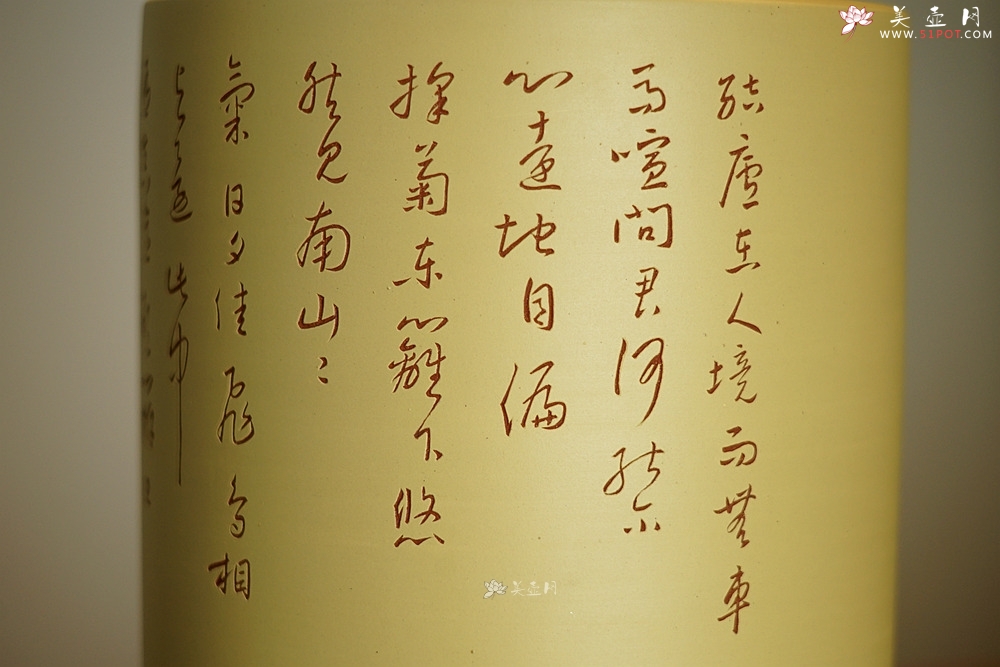 美壶网
WWW.51POT.COM
結廬在人境而無車
馬喧問君何能尔
心遠地自偏
採菊東籬下悠
然見南山〻
氣日夕佳飛鳥相
與還此中
美壶网